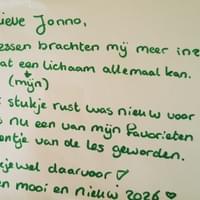 ieve Jonno,
essen brachten mij meer inz
at een lichaam allemaal kan.
(mijn)
stukje rust was nieuw voor
s nu een van mijn favorieten
entje van de les geworden.
kjewel daarvoor ♡
en mooi en nieuw 2026 ♡